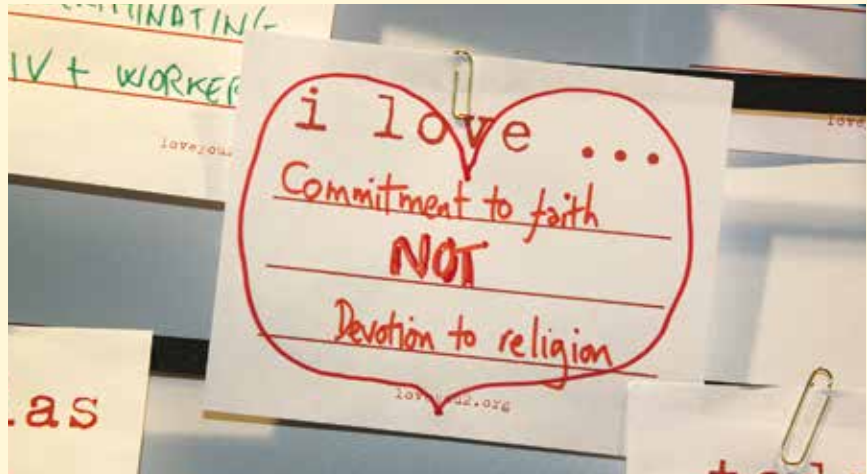 IV + WORKER
i love ...
Commitment to faith
NOT
Devotion to religion
as